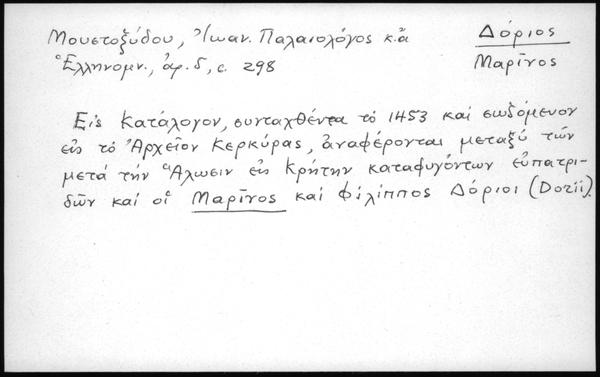 Μουστοξύδου, Ἰωαν. Παλαιολόγος κ.ἄ
Δόριος
Μαρῖνος
Ἑλληνομν., ἀρ. δ, c. 298
Εἰς κατάλογον, συνταχθέντα τό 1453 καί σωζόμενον
εἰς τό Ἀρχεῖον Κερκύρας, ἀναφέρονται μεταξύ τῶν
μετά τήν Ἅλωσιν εἰς Κρήτην καταφυγόντων εὐπατρι-
δῶν καί οἱ Μαρῖνος καί Φίλιππος Δόριοι (Dorii).